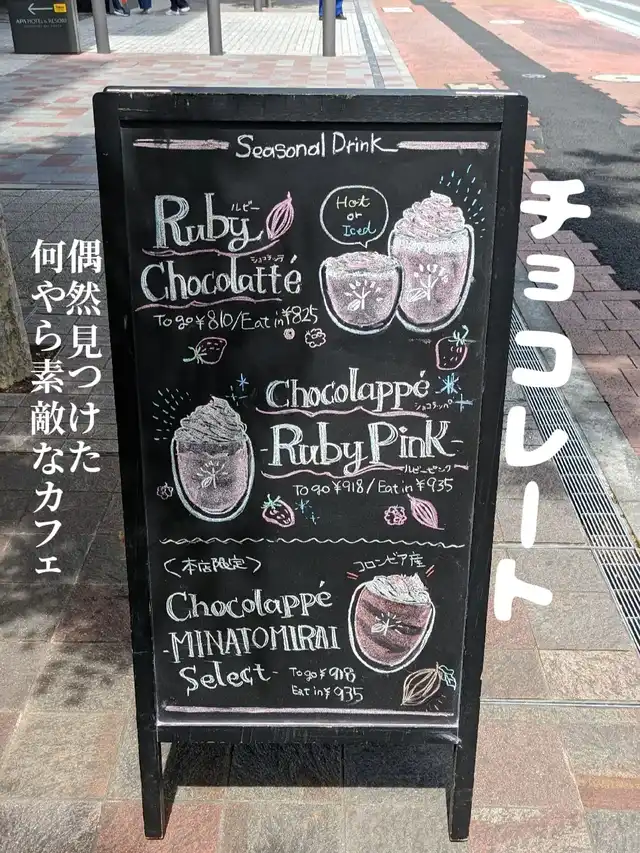 APA HOTEL & RESORT
Seasonal Drink
Ruby
ルビー
Hot
or
Iced
ショコラッテ
Chocolatté
To go ¥810/Eat in ¥825
Chocolappé
ショコラッペ
-Ruby Pink-
ルビーピンク
To go ¥918/Eat in ¥935
〈本店限定〉
コロンビア産
Chocolappé
-MINATOMIRAI
Select-
To go ¥918
Eat in ¥935
チョコレート
偶然見つけた
何やら素敵なカフェ